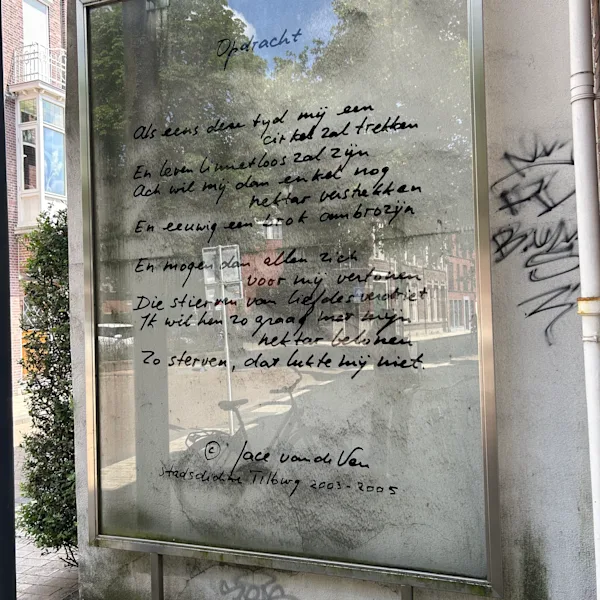 Opdracht
Als eens deze tyd mij een
cirkel zal trekken
En leven limietloos zal zijn
Ach wil mij dan enkel nog
nektar verstrekken
En eeuwig een brok ambrozijn
En mogen dan allen zich
voor mij vertonen
Die stierven van liefdesverdriet
Ik wil hen zo graag met mijn
nektar belonen
Zo sterven, dat lukte mij niet.
© Jace van de Ven
Stadsdichter Tilburg 2003-2005